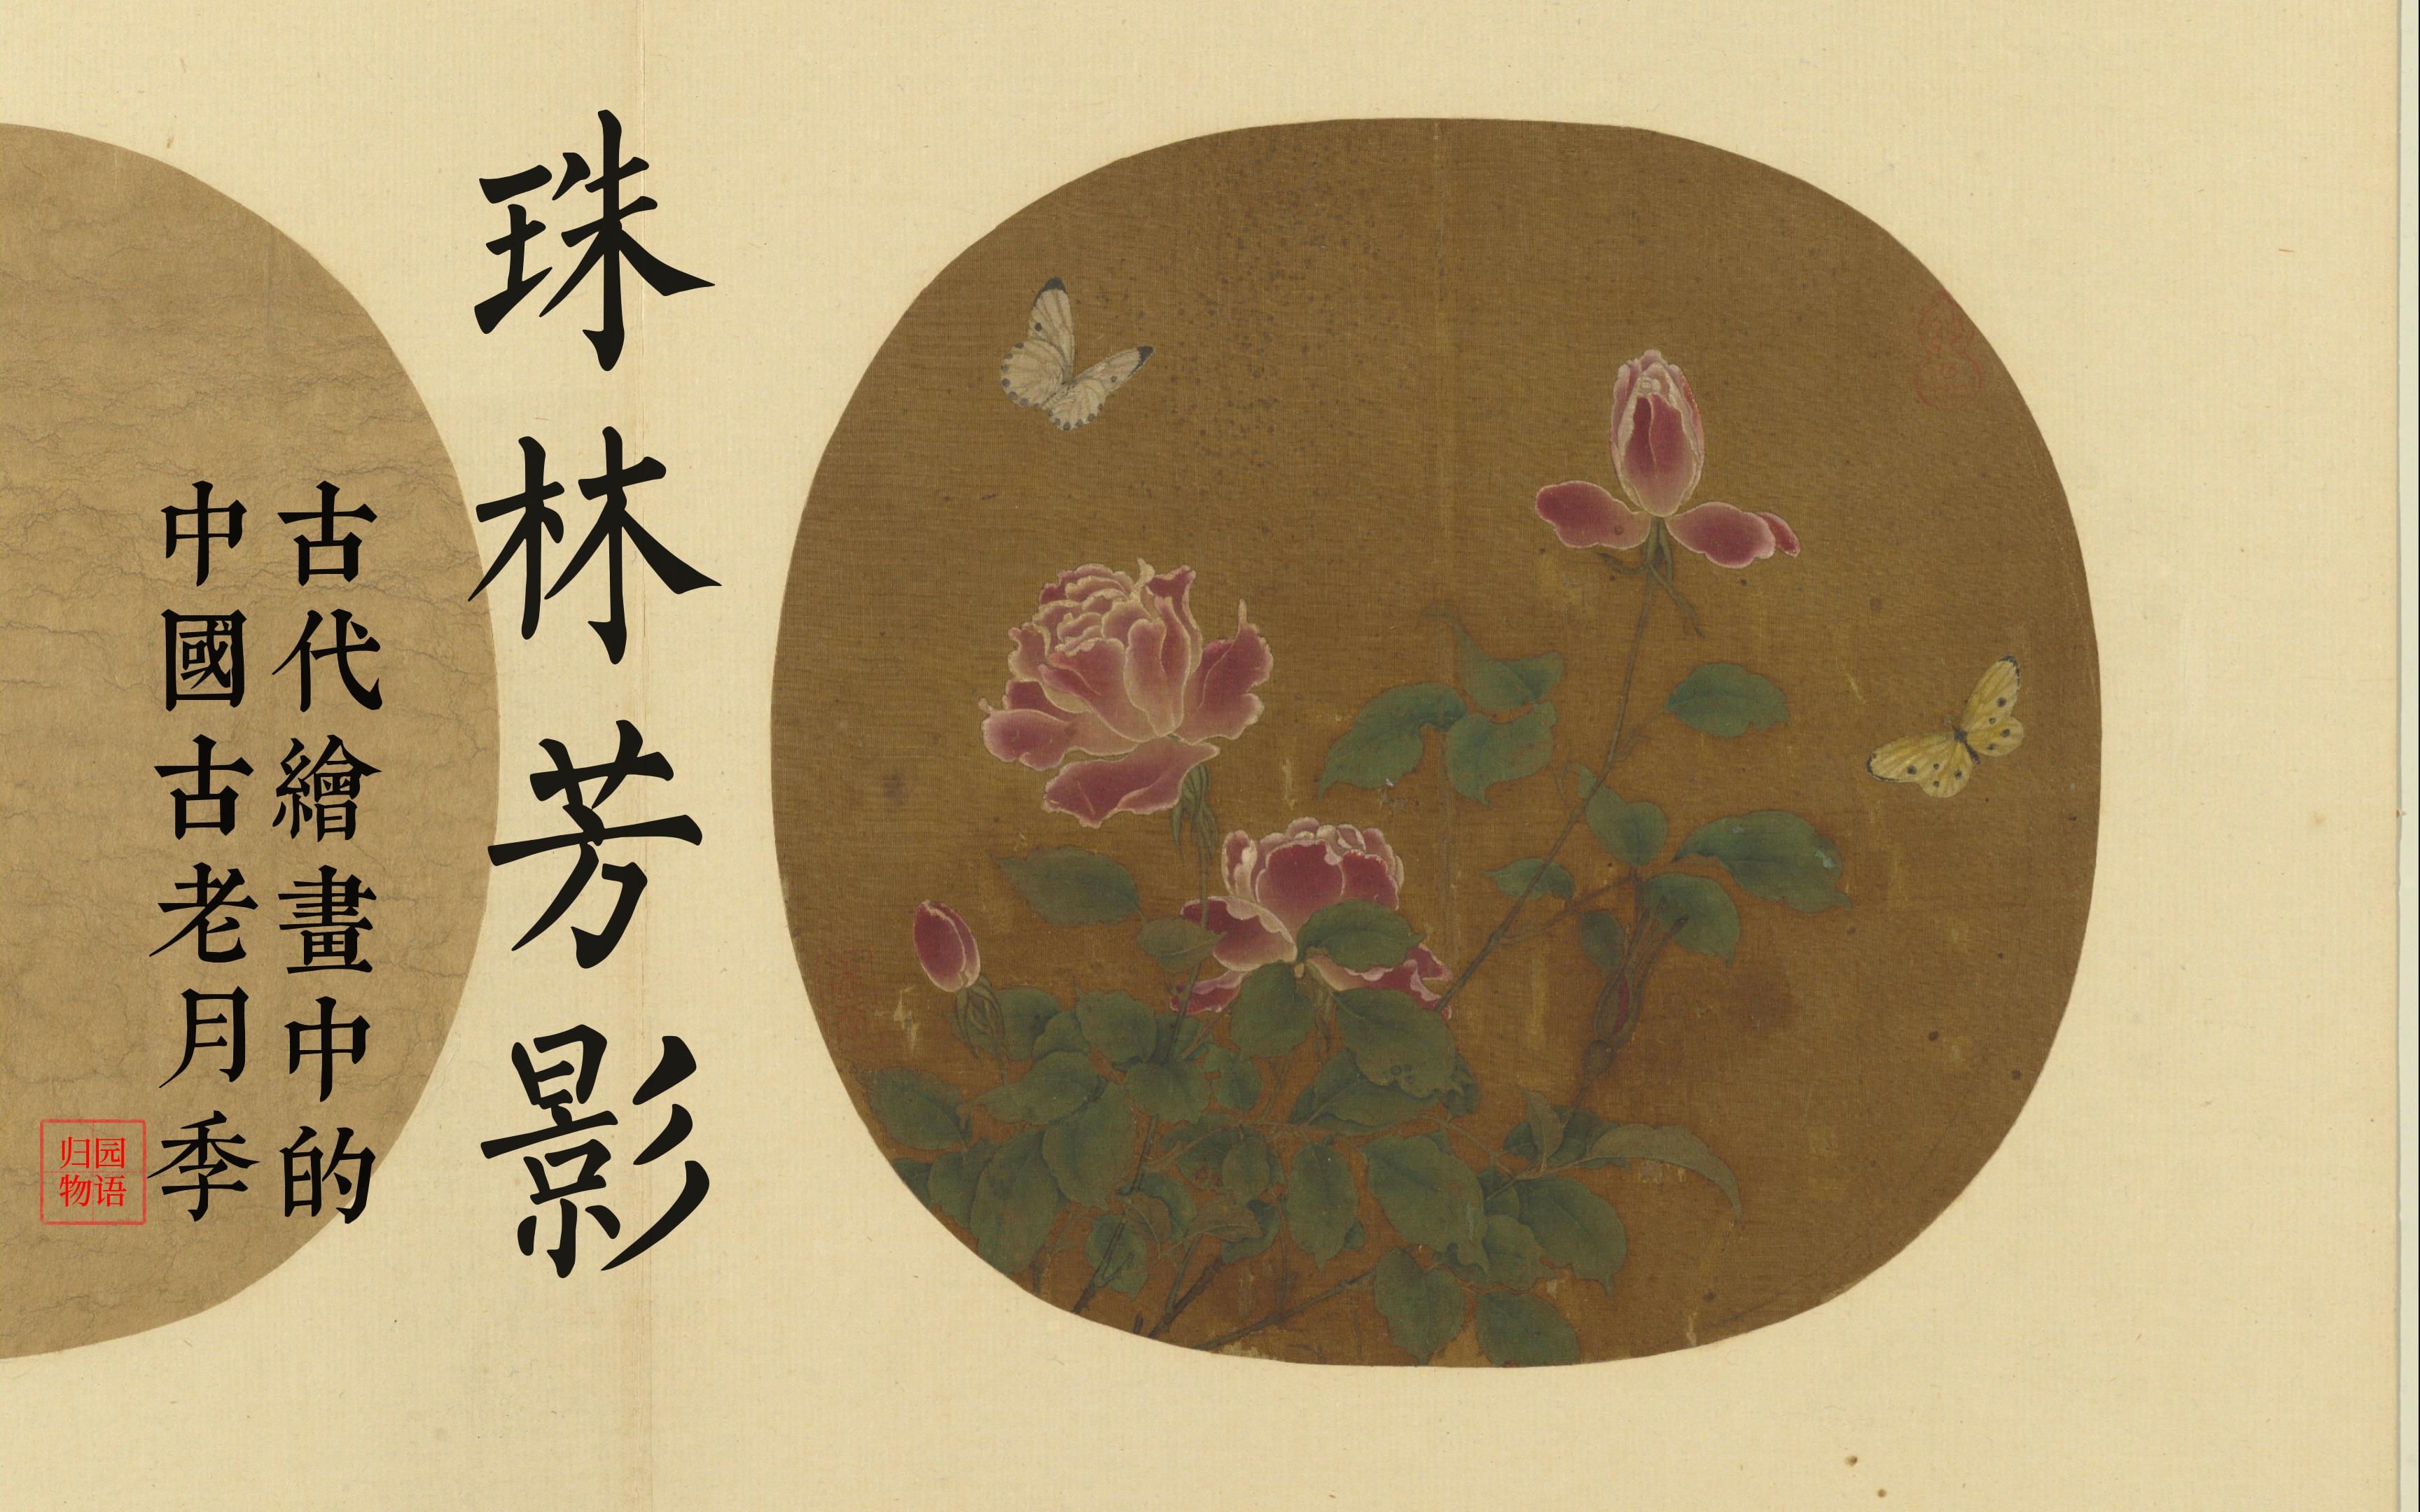 珠林芳影
古代繪畫中的
中國古老月季
归园
物语